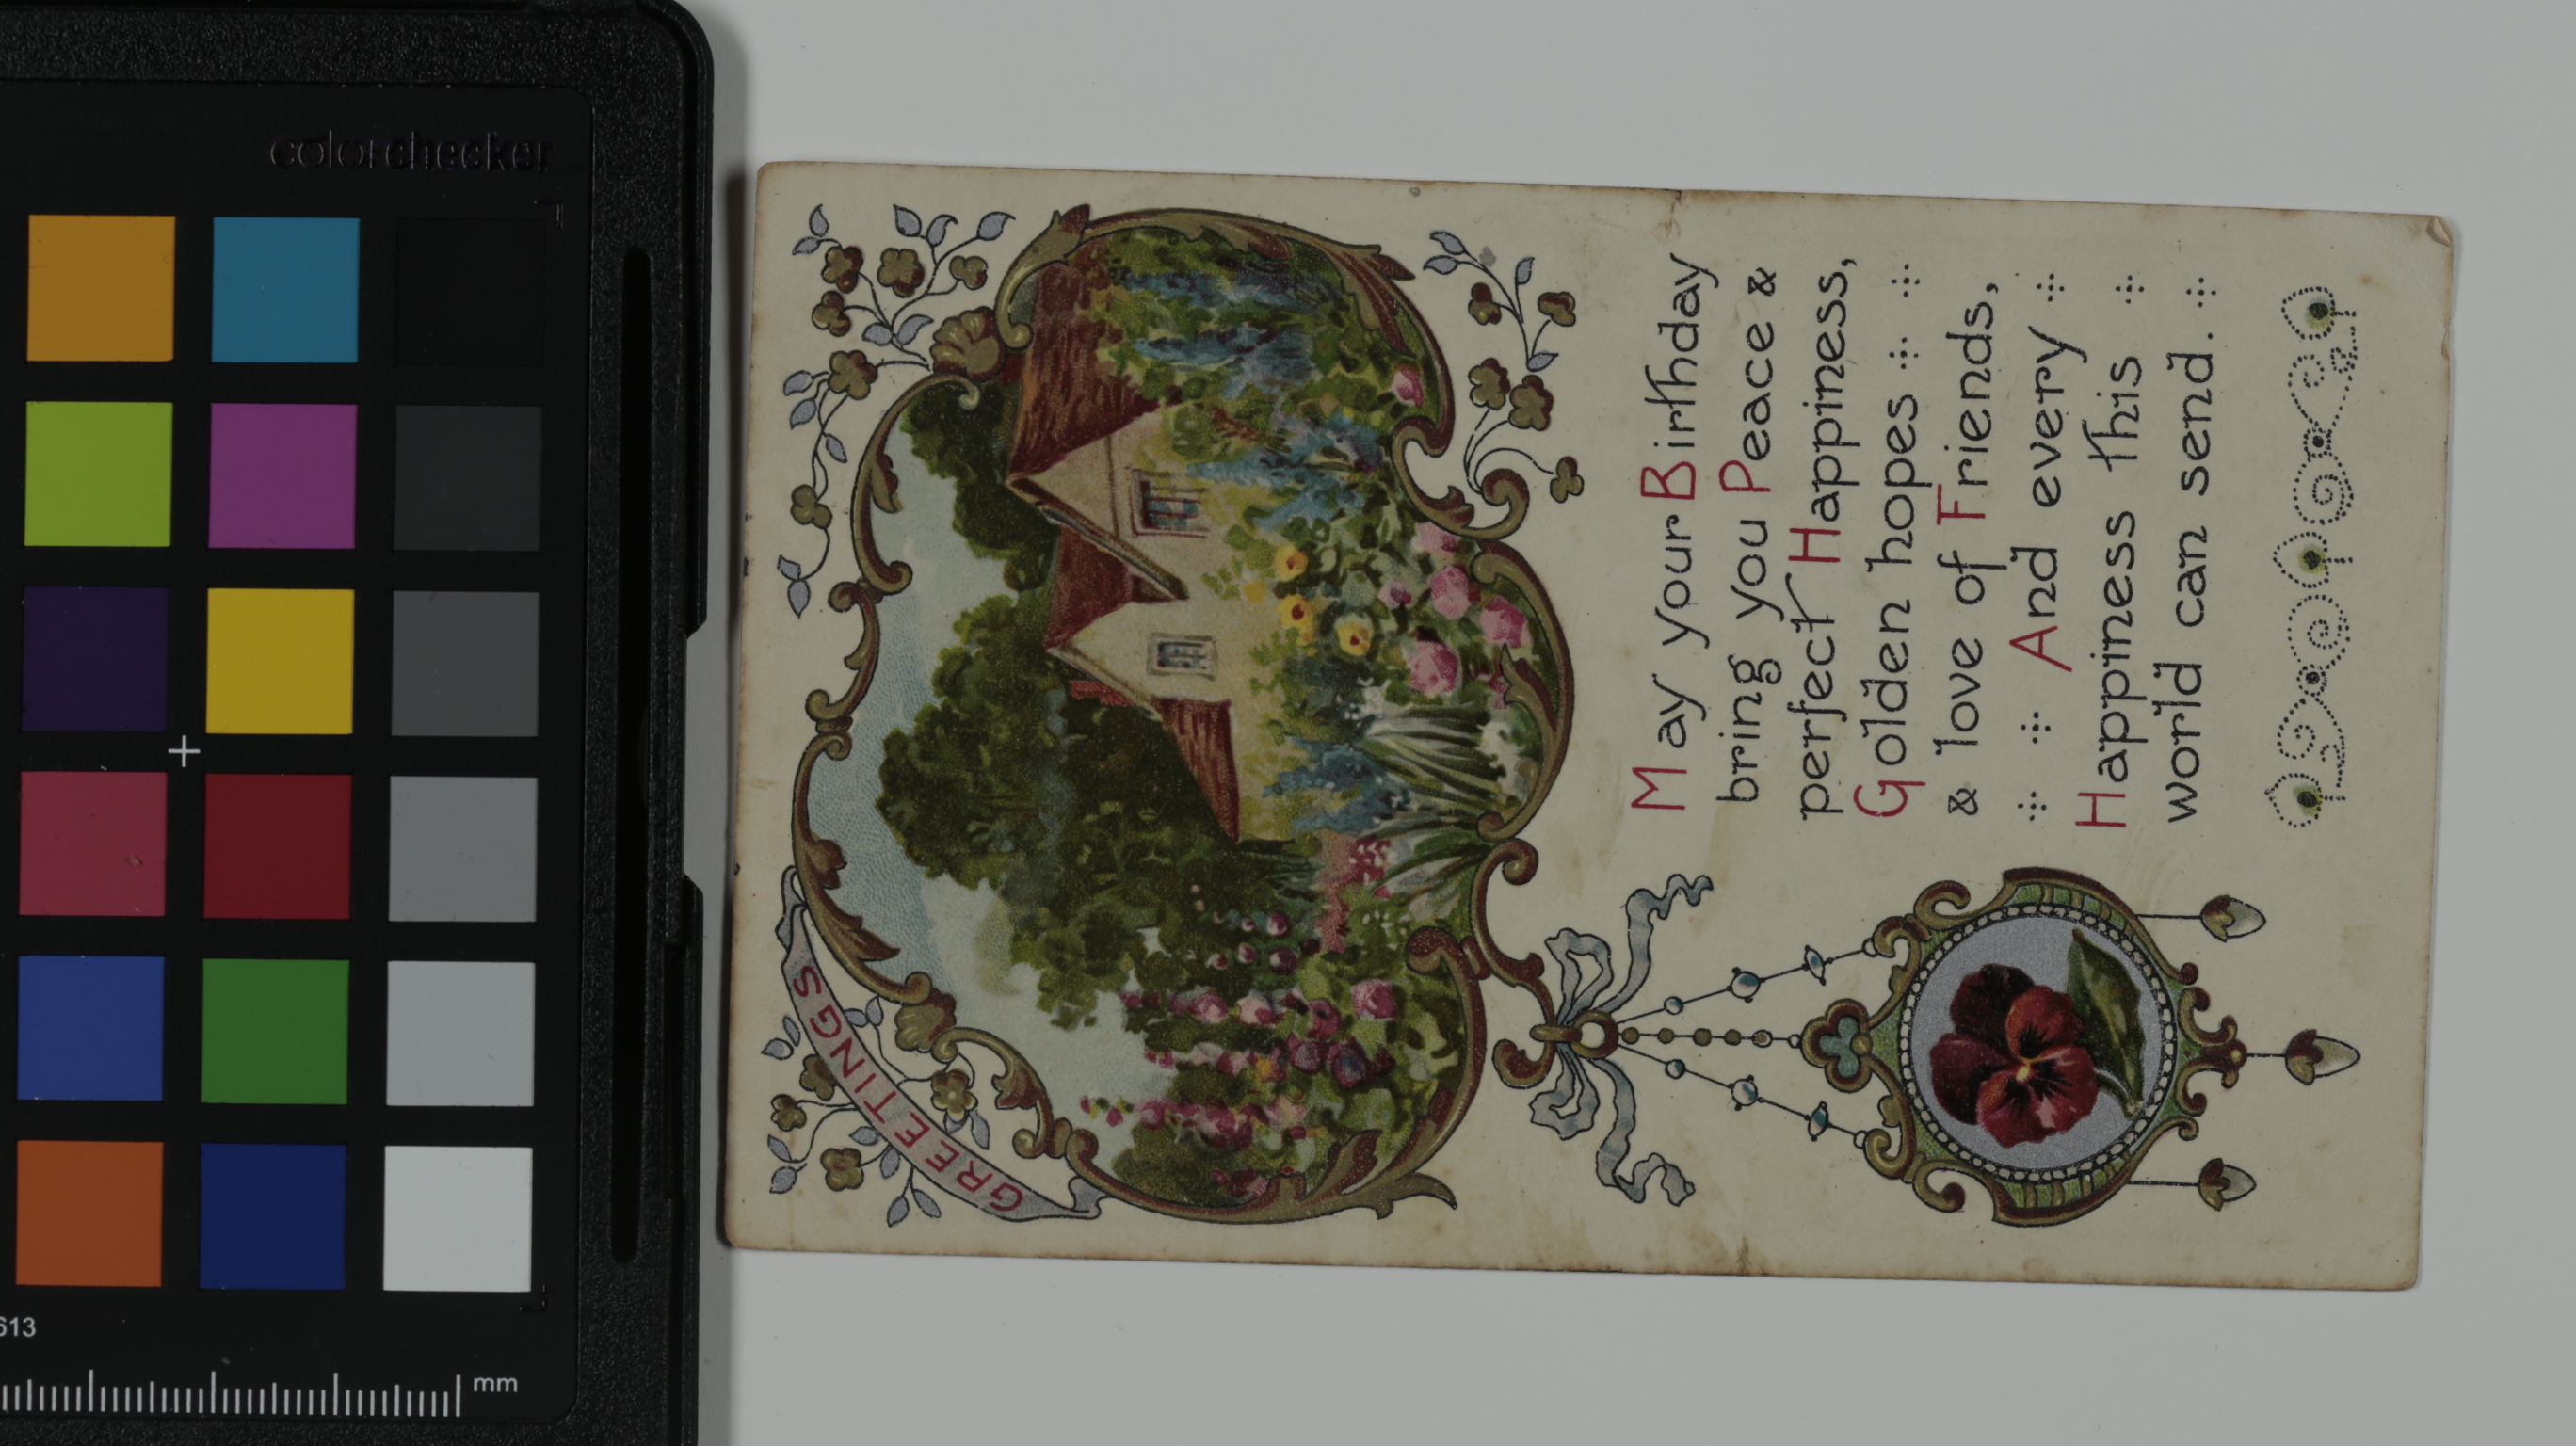 colorchecker
613
mm
GREETINGS
May your Birthday
bring you Peace &
perfect Happiness,
Golden hopes
& love of Friends,
And every
Happiness this
world can send.